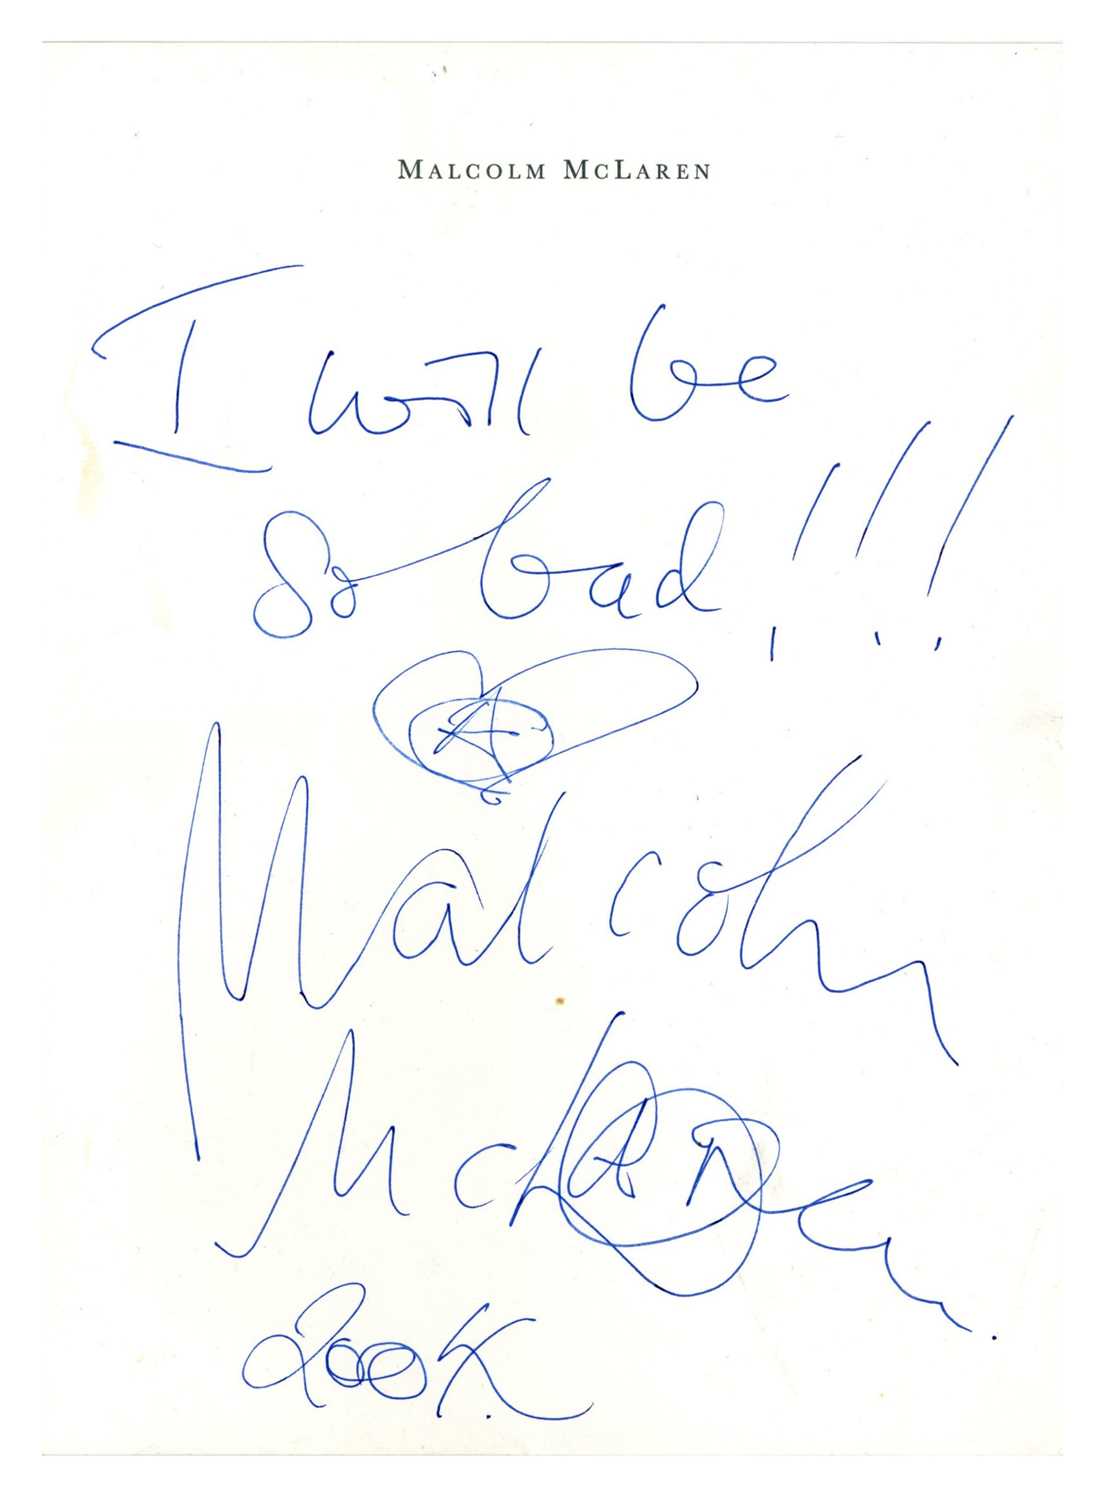 MALCOLM MCLAREN
I will be
So bad!!!
A
Malcolm
McLAREN.
200K.